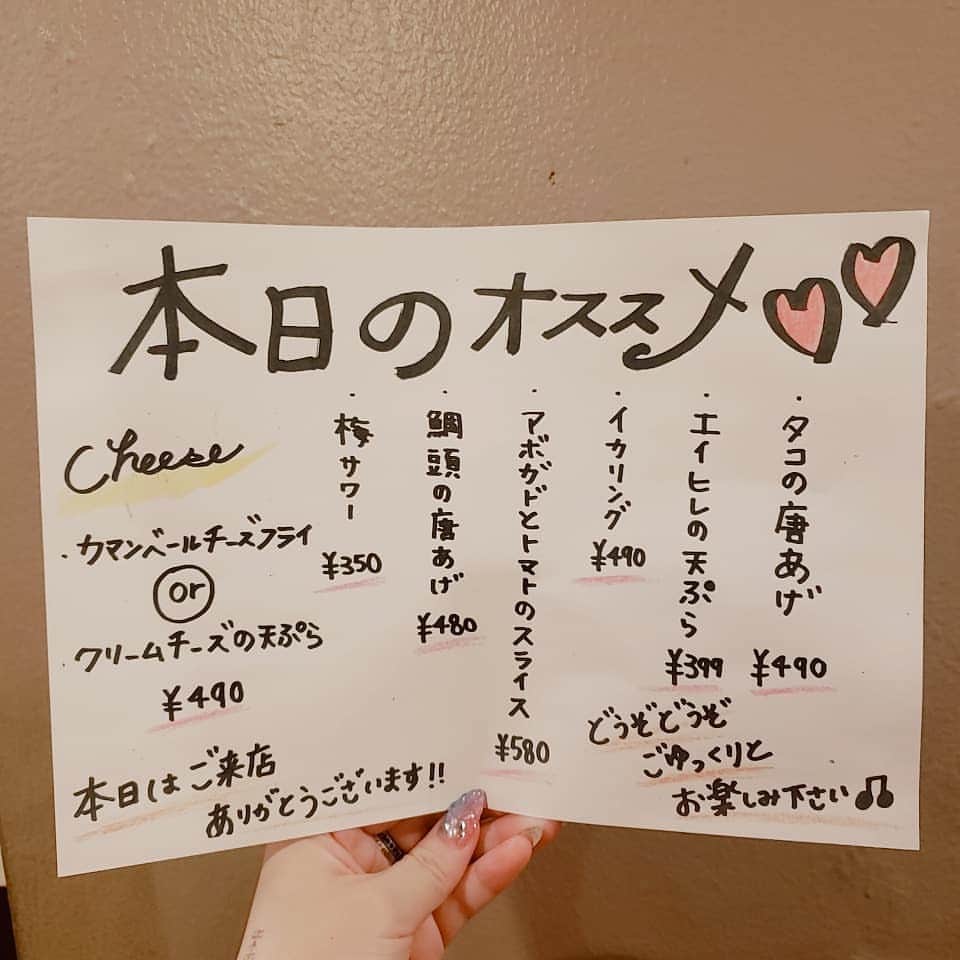 本日のオススメ
・タコの唐あげ
¥490
・エイヒレの天ぷら
¥399
・イカリング
¥490
・アボガドとトマトのスライス
¥580
・鯛頭の唐あげ
¥480
・梅サワー
¥350
Cheese
・カマンベールチーズフライ
or
・クリームチーズの天ぷら
¥490
どうぞどうぞ
ごゆっくりと
お楽しみ下さい
本日はご来店
ありがとうございます!!